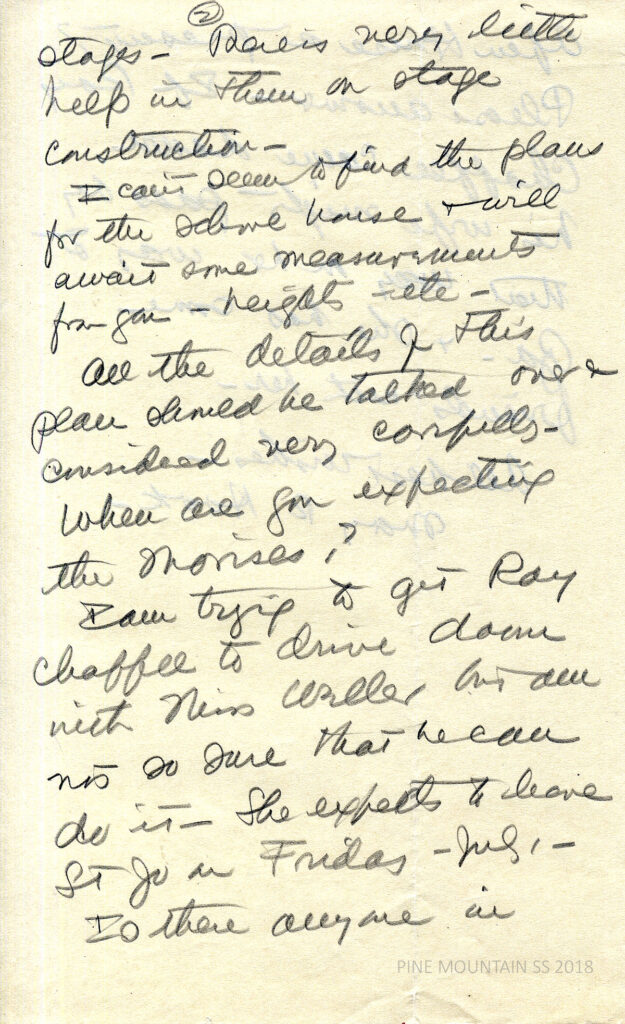 ②
stages - There is very little
help in them on stage
construction -
I can't seem to find the plans
for the school house & will
await some measurements
from you - heights - etc -
All the details of this
plan should be talked over &
considered very carefully -
When are you expecting
the Morises?
I am trying to get Ray
Chaffee to drive down
with Miss Weller but am
not so sure that he can
do it - She expects to leave
St Jo on Friday - July 1 -
Is there anyone in
PINE MOUNTAIN SS 2018